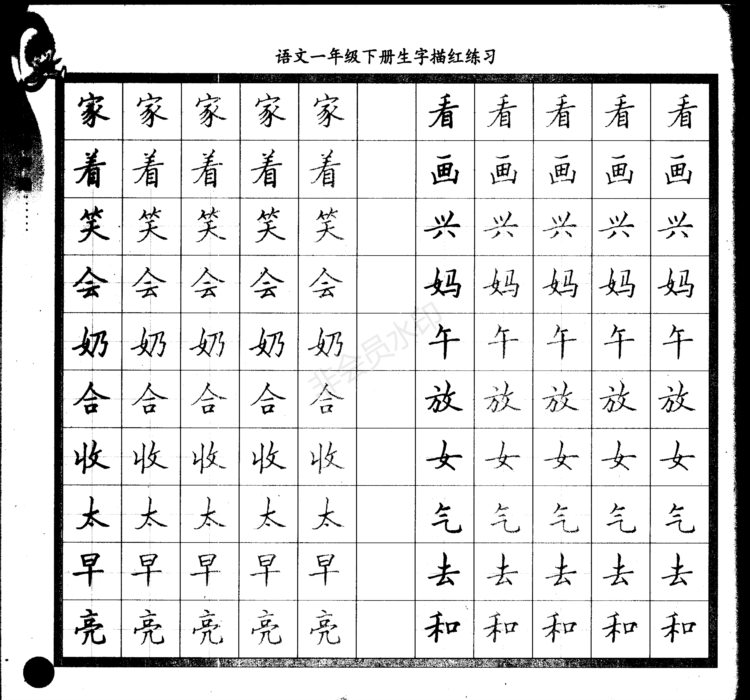 语文一年级下册生字描红练习
家 家 家 家 家 看 看 看 看 看
着 着 着 着 着 画 画 画 画 画
笑 笑 笑 笑 笑 兴 兴 兴 兴 兴
会 会 会 会 会 妈 妈 妈 妈 妈
奶 奶 奶 奶 奶 午 午 午 午 午
合 合 合 合 合 放 放 放 放 放
收 收 收 收 收 女 女 女 女 女
太 太 太 太 太 气 气 气 气 气
早 早 早 早 早 去 去 去 去 去
亮 亮 亮 亮 亮 和 和 和 和 和
非会员水印